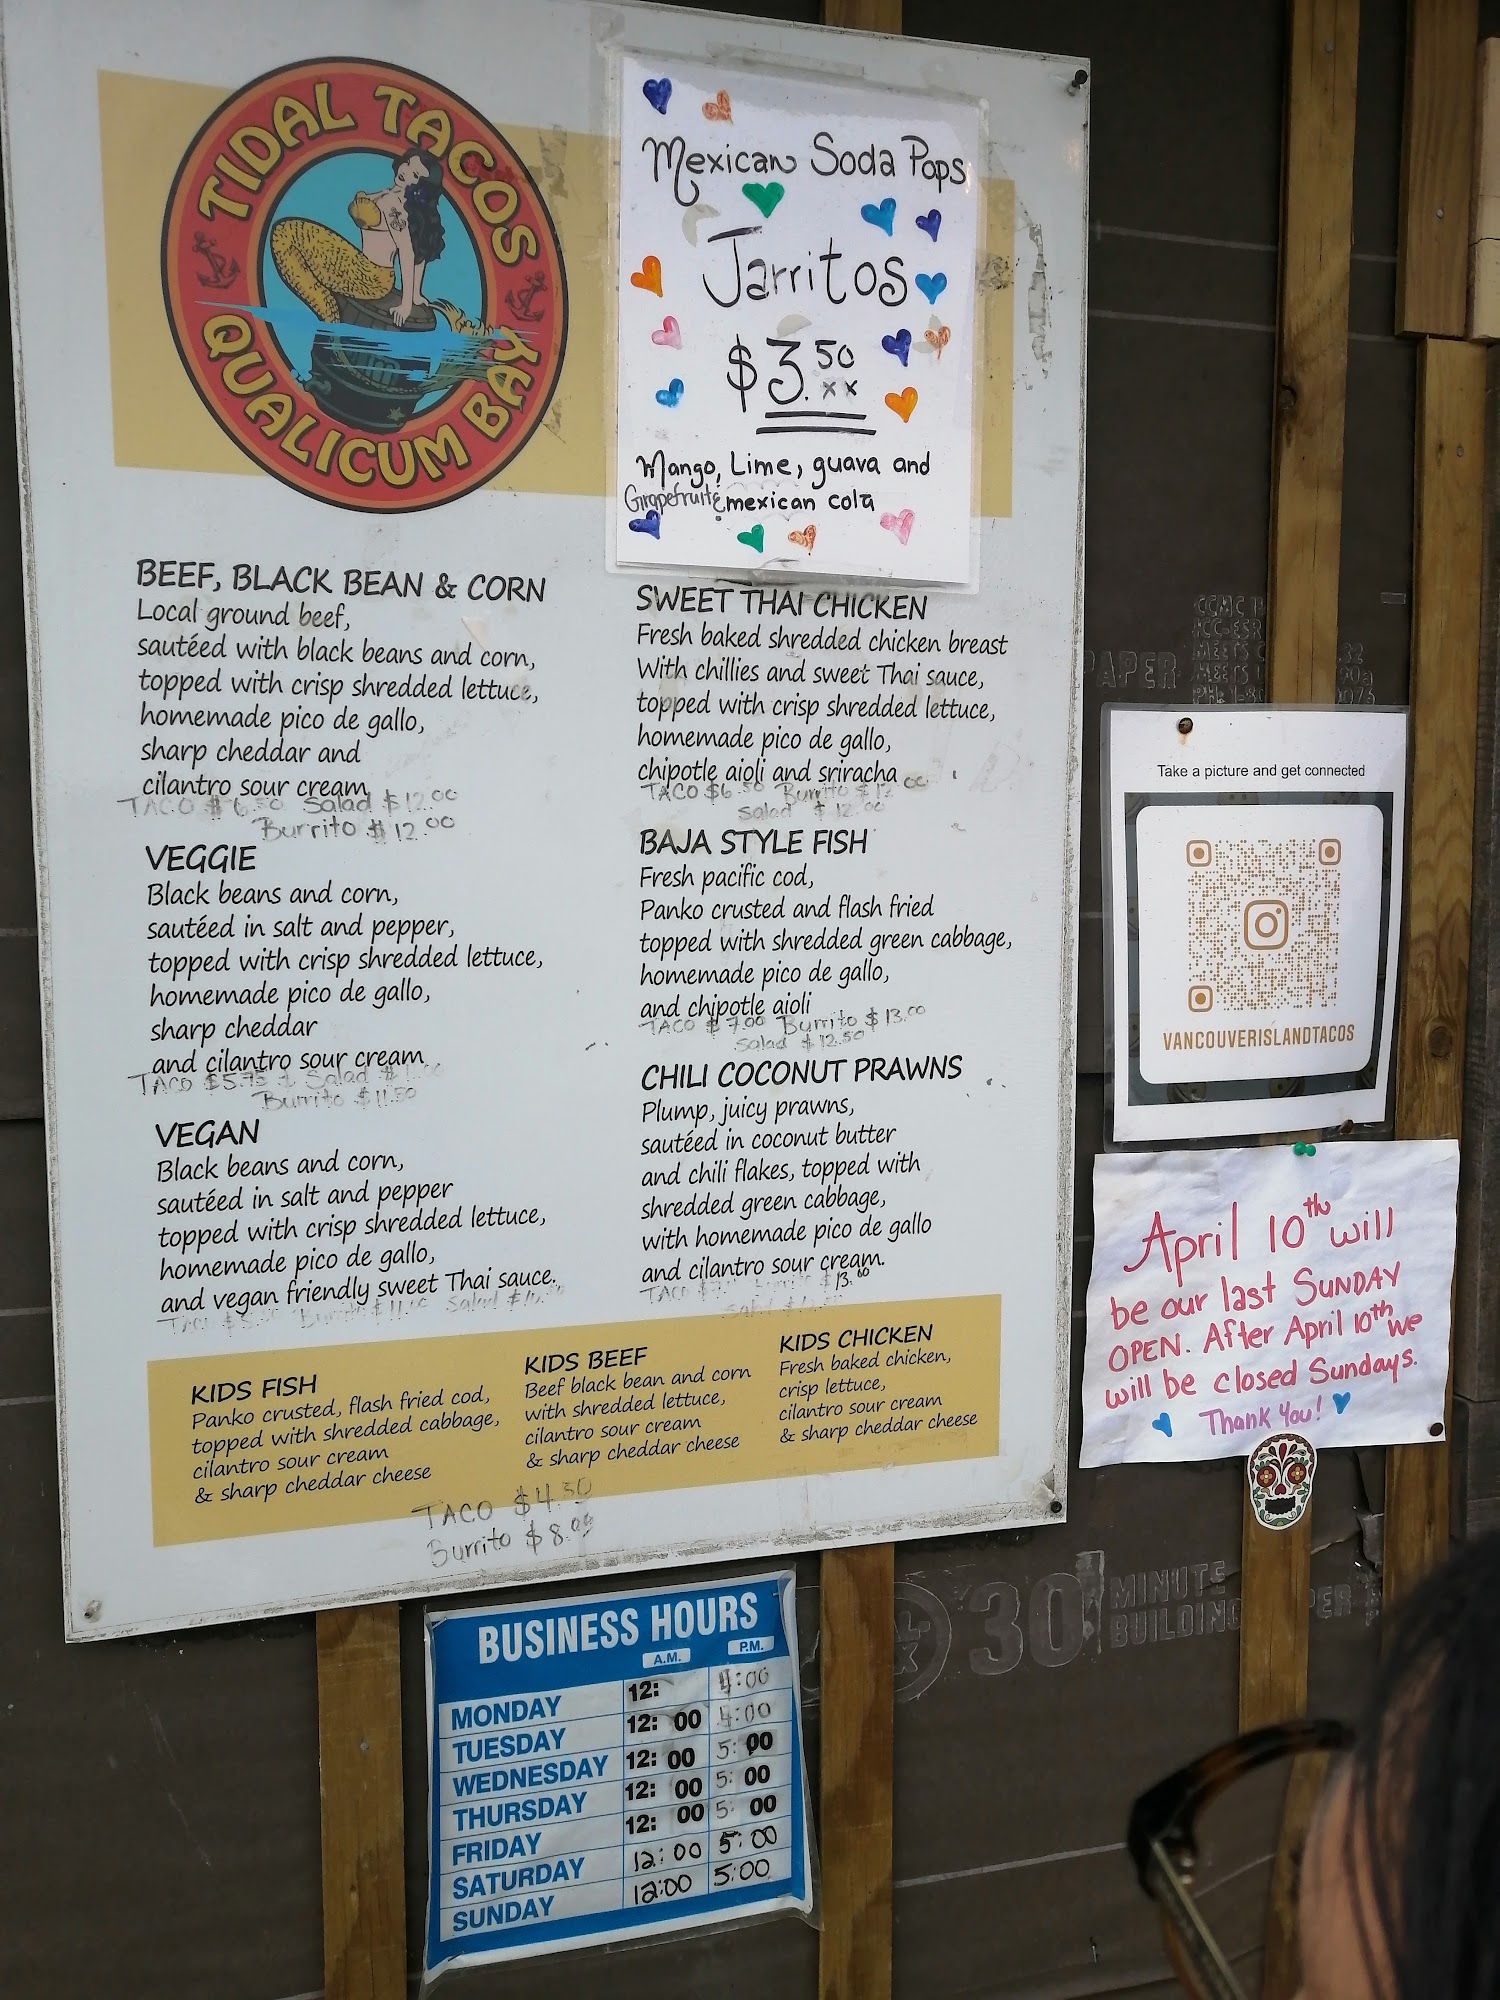 TIDAL TACOS
QUALICUM BAY
Mexican Soda Pops
Jarritos
$3.50
xx
Mango, Lime, guava and
Grapefruit & mexican cola
BEEF, BLACK BEAN & CORN
Local ground beef,
sautéed with black beans and corn,
topped with crisp shredded lettuce,
homemade pico de gallo,
sharp cheddar and
cilantro sour cream
TACO $6.50 Salad $12.00
Burrito $12.00
VEGGIE
Black beans and corn,
sautéed in salt and pepper,
topped with crisp shredded lettuce,
homemade pico de gallo,
sharp cheddar
and cilantro sour cream
TACO $5.75 Salad
Burrito $11.50
VEGAN
Black beans and corn,
sautéed in salt and pepper
topped with crisp shredded lettuce,
homemade pico de gallo,
and vegan friendly sweet Thai sauce.
SWEET THAI CHICKEN
Fresh baked shredded chicken breast
With chillies and sweet Thai sauce,
topped with crisp shredded lettuce,
homemade pico de gallo,
chipotle aioli and sriracha
TACO $6.50 Burrito $12.00
Salad $12.00
BAJA STYLE FISH
Fresh pacific cod,
Panko crusted and flash fried
topped with shredded green cabbage,
homemade pico de gallo,
and chipotle aioli
TACO $7.00 Burrito $13.00
Salad $12.50
CHILI COCONUT PRAWNS
Plump, juicy prawns,
sautéed in coconut butter
and chili flakes, topped with
shredded green cabbage,
with homemade pico de gallo
and cilantro sour cream.
KIDS FISH
Panko crusted, flash fried cod,
topped with shredded cabbage,
cilantro sour cream
& sharp cheddar cheese
KIDS BEEF
Beef black bean and corn
with shredded lettuce,
cilantro sour cream
& sharp cheddar cheese
KIDS CHICKEN
Fresh baked chicken,
crisp lettuce,
cilantro sour cream
& sharp cheddar cheese
TACO $4.50
Burrito $8.00
Take a picture and get connected
VANCOUVERISLANDTACOS
April 10th will
be our last SUNDAY
OPEN. After April 10th we
will be closed Sundays.
Thank You!
BUSINESS HOURS
A.M. P.M.
MONDAY 12: 4:00
TUESDAY 12:00 4:00
WEDNESDAY 12:00 5:00
THURSDAY 12:00 5:00
FRIDAY 12:00 5:00
SATURDAY 12:00 5:00
SUNDAY 12:00 5:00
30 MINUTE
BUILDING